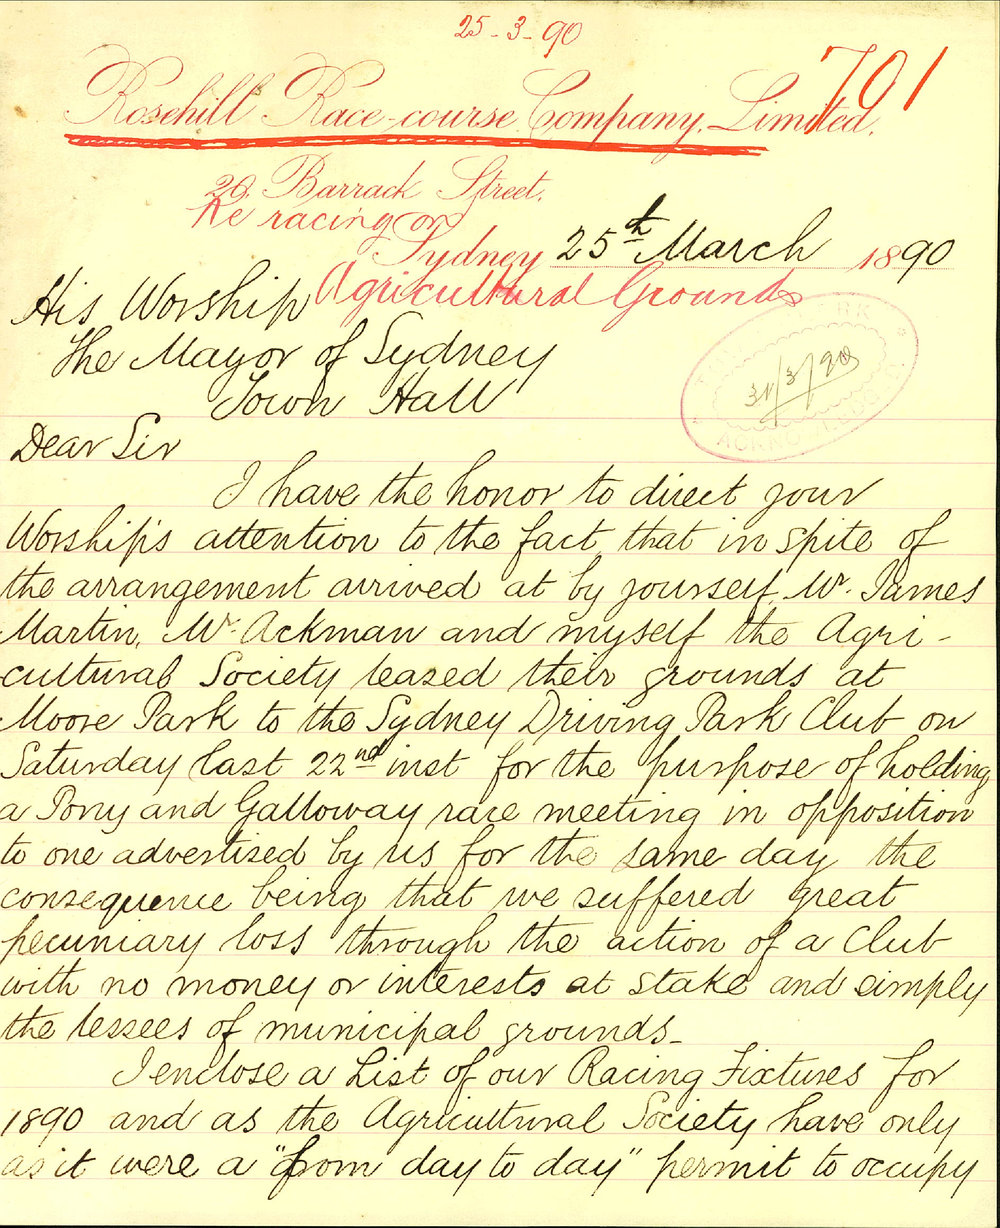 25-3-90
701
Rosehill Race-course Company, Limited.
20, Barrack Street,
Re racing on
Sydney 25th March 1890
Agricultural Grounds
His Worship
The Mayor of Sydney
Town Hall
31/3/90
Dear Sir
I have the honor to direct your
Worship's attention to the fact that in spite of
the arrangement arrived at by yourself, Mr. James
Martin, Mr. Ackman and myself the Agri-
cultural Society leased their grounds at
Moore Park to the Sydney Driving Park Club on
Saturday last 22nd inst for the purpose of holding
a Pony and Galloway race meeting in opposition
to one advertised by us for the same day the
consequence being that we suffered great
pecuniary loss through the action of a Club
with no money or interests at stake and simply
the lessees of municipal grounds_
I enclose a List of our Racing Fixtures for
1890 and as the Agricultural Society have only
as it were a "from day to day" permit to occupy